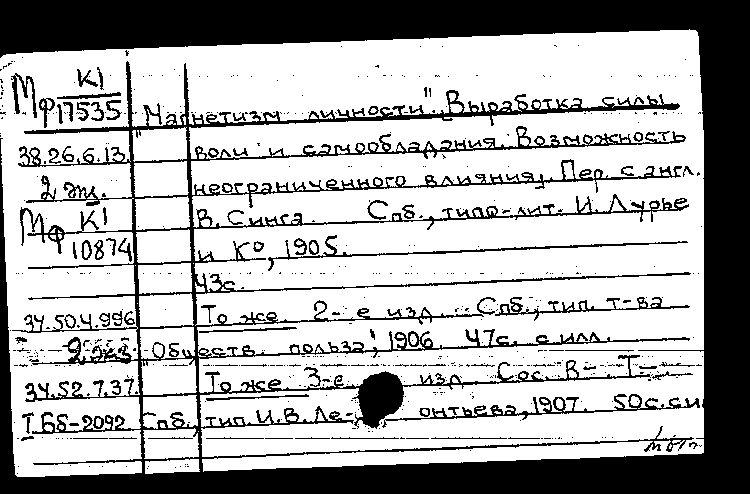 Мф К1
17535 "Магнетизм личности". Выработка силы
38.26.6.13. воли и самообладания. Возможность
2 экз. неограниченного влияния. Пер. с англ.
Мф К1 В. Синга. Спб., типо-лит. И. Лурье
10874 и К°, 1905.
43с.
34.50.4.996 То же. 2-е изд. Спб., тип. т-ва
2 экз "Обществ. польза", 1906. 47с. с илл.
34.52.7.37. То же. 3-е изд. Сос. В-. Т-.
I Бб-2092 Спб., тип. И.В. Ле-онтьева, 1907. 50с. си